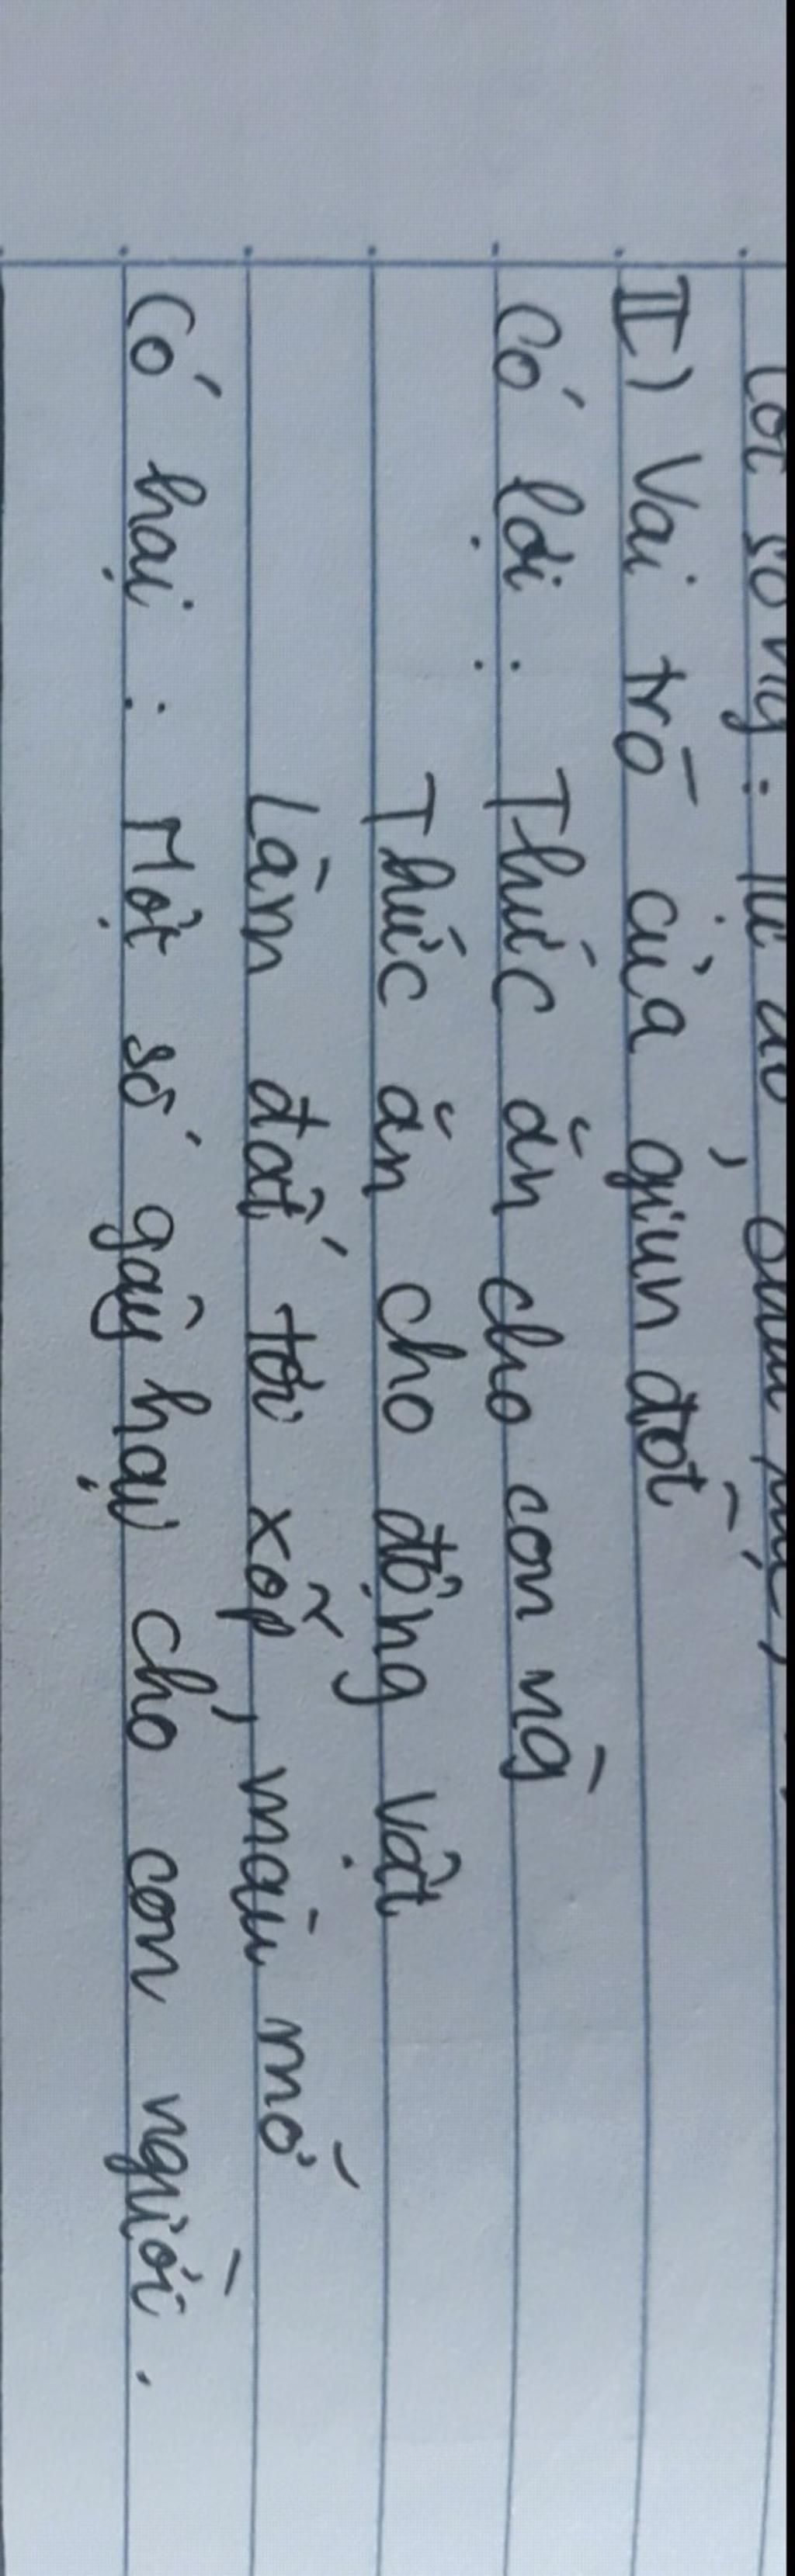 sống:
II) Vai trò của giun đốt
Có lợi : Thức ăn cho con ng̀
Thức ăn cho động vật
Làm đất tơi xốp, màu mỡ
Có hại : Một số gây hại cho con người.